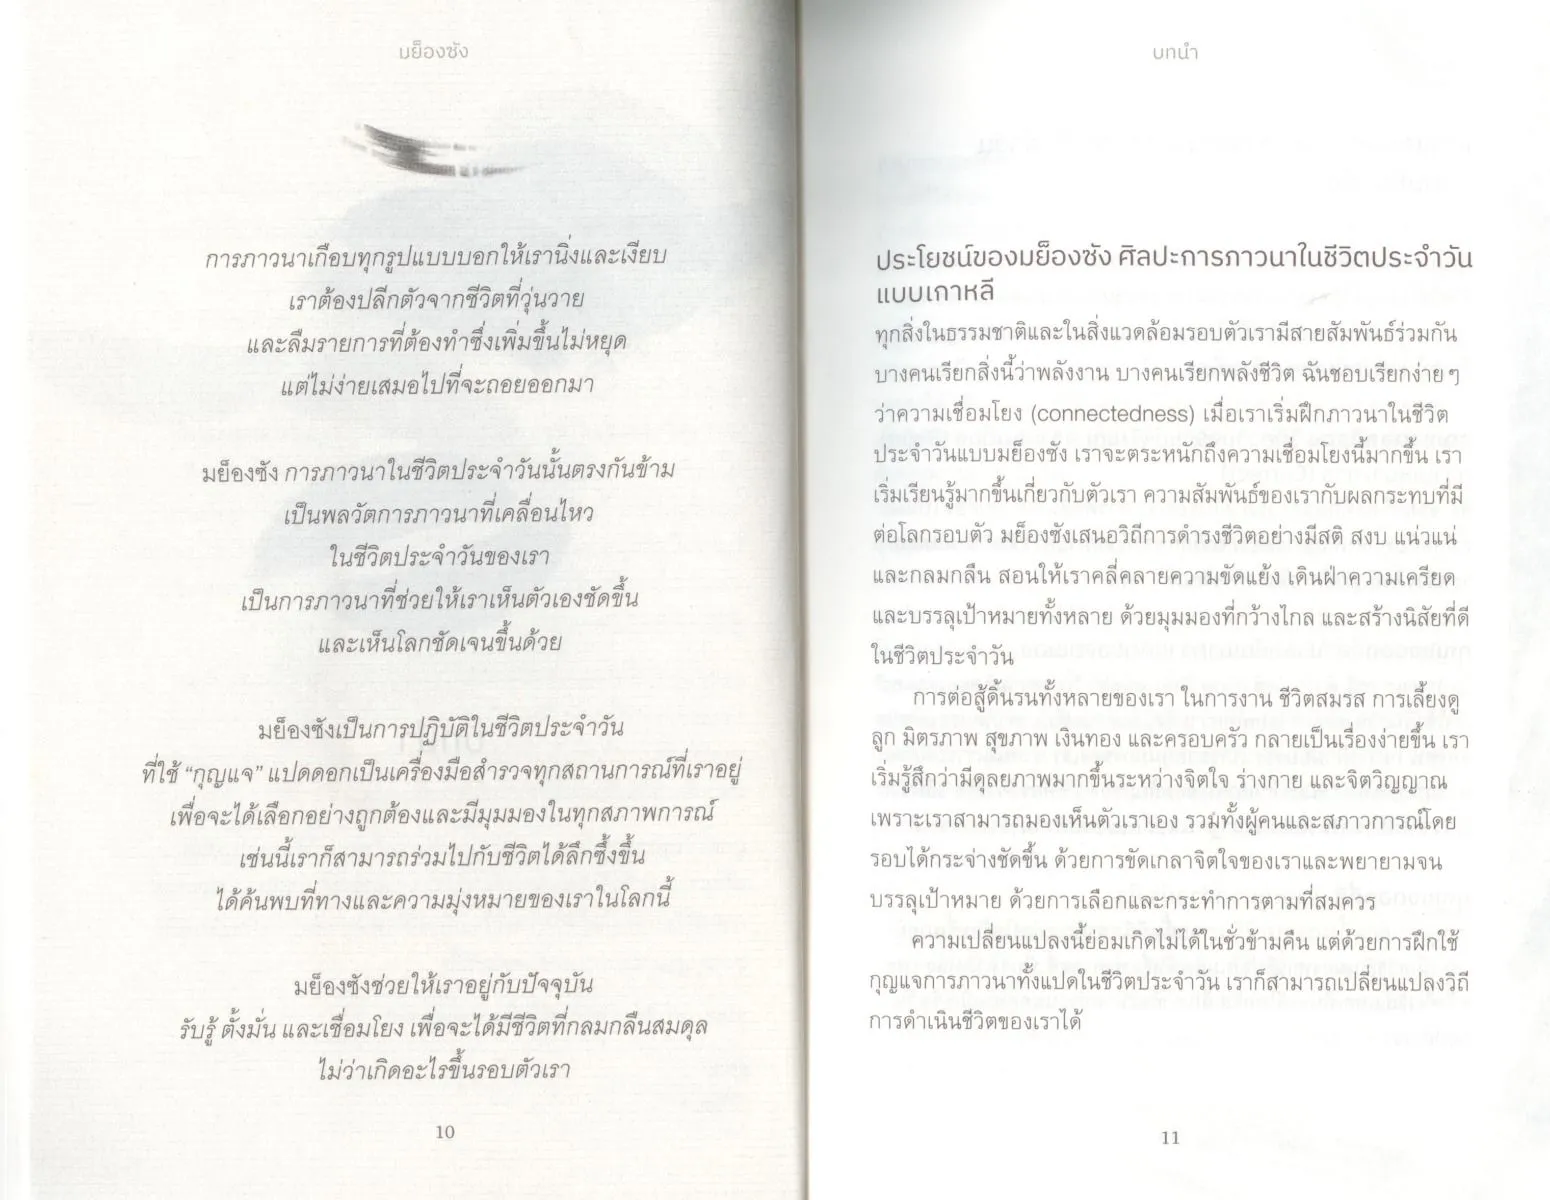 มย็องซัง
การภาวนาเกือบทุกรูปแบบบอกให้เรานิ่งและเงียบ
เราต้องปลีกตัวจากชีวิตที่วุ่นวาย
และลืมรายการที่ต้องทำซึ่งเพิ่มขึ้นไม่หยุด
แต่ไม่ง่ายเสมอไปที่จะถอยออกมา
มย็องซัง การภาวนาในชีวิตประจำวันนั้นตรงกันข้าม
เป็นพลวัตการภาวนาที่เคลื่อนไหว
ในชีวิตประจำวันของเรา
เป็นการภาวนาที่ช่วยให้เราเห็นตัวเองชัดขึ้น
และเห็นโลกชัดเจนขึ้นด้วย
มย็องซังเป็นการปฏิบัติในชีวิตประจำวัน
ที่ใช้ “กุญแจ” แปดดอกเป็นเครื่องมือสำรวจทุกสถานการณ์ที่เราอยู่
เพื่อจะได้เลือกอย่างถูกต้องและมีมุมมองในทุกสภาพการณ์
เช่นนี้เราก็สามารถร่วมไปกับชีวิตได้ลึกซึ้งขึ้น
ได้ค้นพบที่ทางและความมุ่งหมายของเราในโลกนี้
มย็องซังช่วยให้เราอยู่กับปัจจุบัน
รับรู้ ตั้งมั่น และเชื่อมโยง เพื่อจะได้มีชีวิตที่กลมกลืนสมดุล
ไม่ว่าเกิดอะไรขึ้นรอบตัวเรา
10
บทนำ
ประโยชน์ของมย็องซัง ศิลปะการภาวนาในชีวิตประจำวัน
แบบเกาหลี
ทุกสิ่งในธรรมชาติและในสิ่งแวดล้อมรอบตัวเรามีสายสัมพันธ์ร่วมกัน
บางคนเรียกสิ่งนี้ว่าพลังงาน บางคนเรียกพลังชีวิต ฉันชอบเรียกง่าย ๆ
ว่าความเชื่อมโยง (connectedness) เมื่อเราเริ่มฝึกภาวนาในชีวิต
ประจำวันแบบมย็องซัง เราจะตระหนักถึงความเชื่อมโยงนี้มากขึ้น เรา
เริ่มเรียนรู้มากขึ้นเกี่ยวกับตัวเรา ความสัมพันธ์ของเรากับผลกระทบที่มี
ต่อโลกรอบตัว มย็องซังเสนอวิถีการดำรงชีวิตอย่างมีสติ สงบ แน่วแน่
และกลมกลืน สอนให้เราคลี่คลายความขัดแย้ง เดินฝ่าความเครียด
และบรรลุเป้าหมายทั้งหลาย ด้วยมุมมองที่กว้างไกล และสร้างนิสัยที่ดี
ในชีวิตประจำวัน
การต่อสู้ดิ้นรนทั้งหลายของเรา ในการงาน ชีวิตสมรส การเลี้ยงดู
ลูก มิตรภาพ สุขภาพ เงินทอง และครอบครัว กลายเป็นเรื่องง่ายขึ้น เรา
เริ่มรู้สึกว่ามีดุลยภาพมากขึ้นระหว่างจิตใจ ร่างกาย และจิตวิญญาณ
เพราะเราสามารถมองเห็นตัวเราเอง รวมทั้งผู้คนและสภาวการณ์โดย
รอบได้กระจ่างชัดขึ้น ด้วยการขัดเกลาจิตใจของเราและพยายามจน
บรรลุเป้าหมาย ด้วยการเลือกและกระทำการตามที่สมควร
ความเปลี่ยนแปลงนี้ย่อมเกิดไม่ได้ในชั่วข้ามคืน แต่ด้วยการฝึกใช้
กุญแจการภาวนาทั้งแปดในชีวิตประจำวัน เราก็สามารถเปลี่ยนแปลงวิถี
การดำเนินชีวิตของเราได้
11